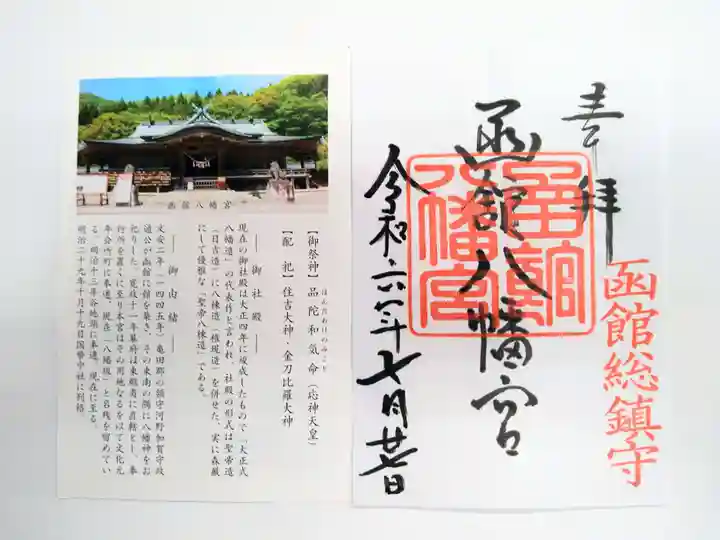 奉拝
函館総鎮守
函館八幡宮
函館八幡宮
令和六年七月廿七日
函館八幡宮
【御祭神】品陀和気命（応神天皇）
ほんだわけのみこと
【配祀】住吉大神・金刀比羅大神
―― 御社殿 ――
現在の御社殿は大正四年に竣成したもので「大正式
八幡造」の代表作と言われ、社殿の形式は聖帝造
（日吉造）に八棟造（権現造）を併せた、実に森厳
にして優雅な「聖帝八棟造」である。
―― 御由緒 ――
文安二年（一四四五年）亀田郡の領守河野加賀守政
通公が函館に館を築き、その東南の隅に八幡神をお
祀りした。寛政十一年幕府は東蝦夷に直轄とし、奉
行所を置くに至り本宮はその用地なるを以て文化元
年会所町に奉遷、現在「八幡坂」と名残を留めてい
る。明治十三年谷地頭に奉遷、現在に至る。
明治二十九年十月十九日国幣中社に列格